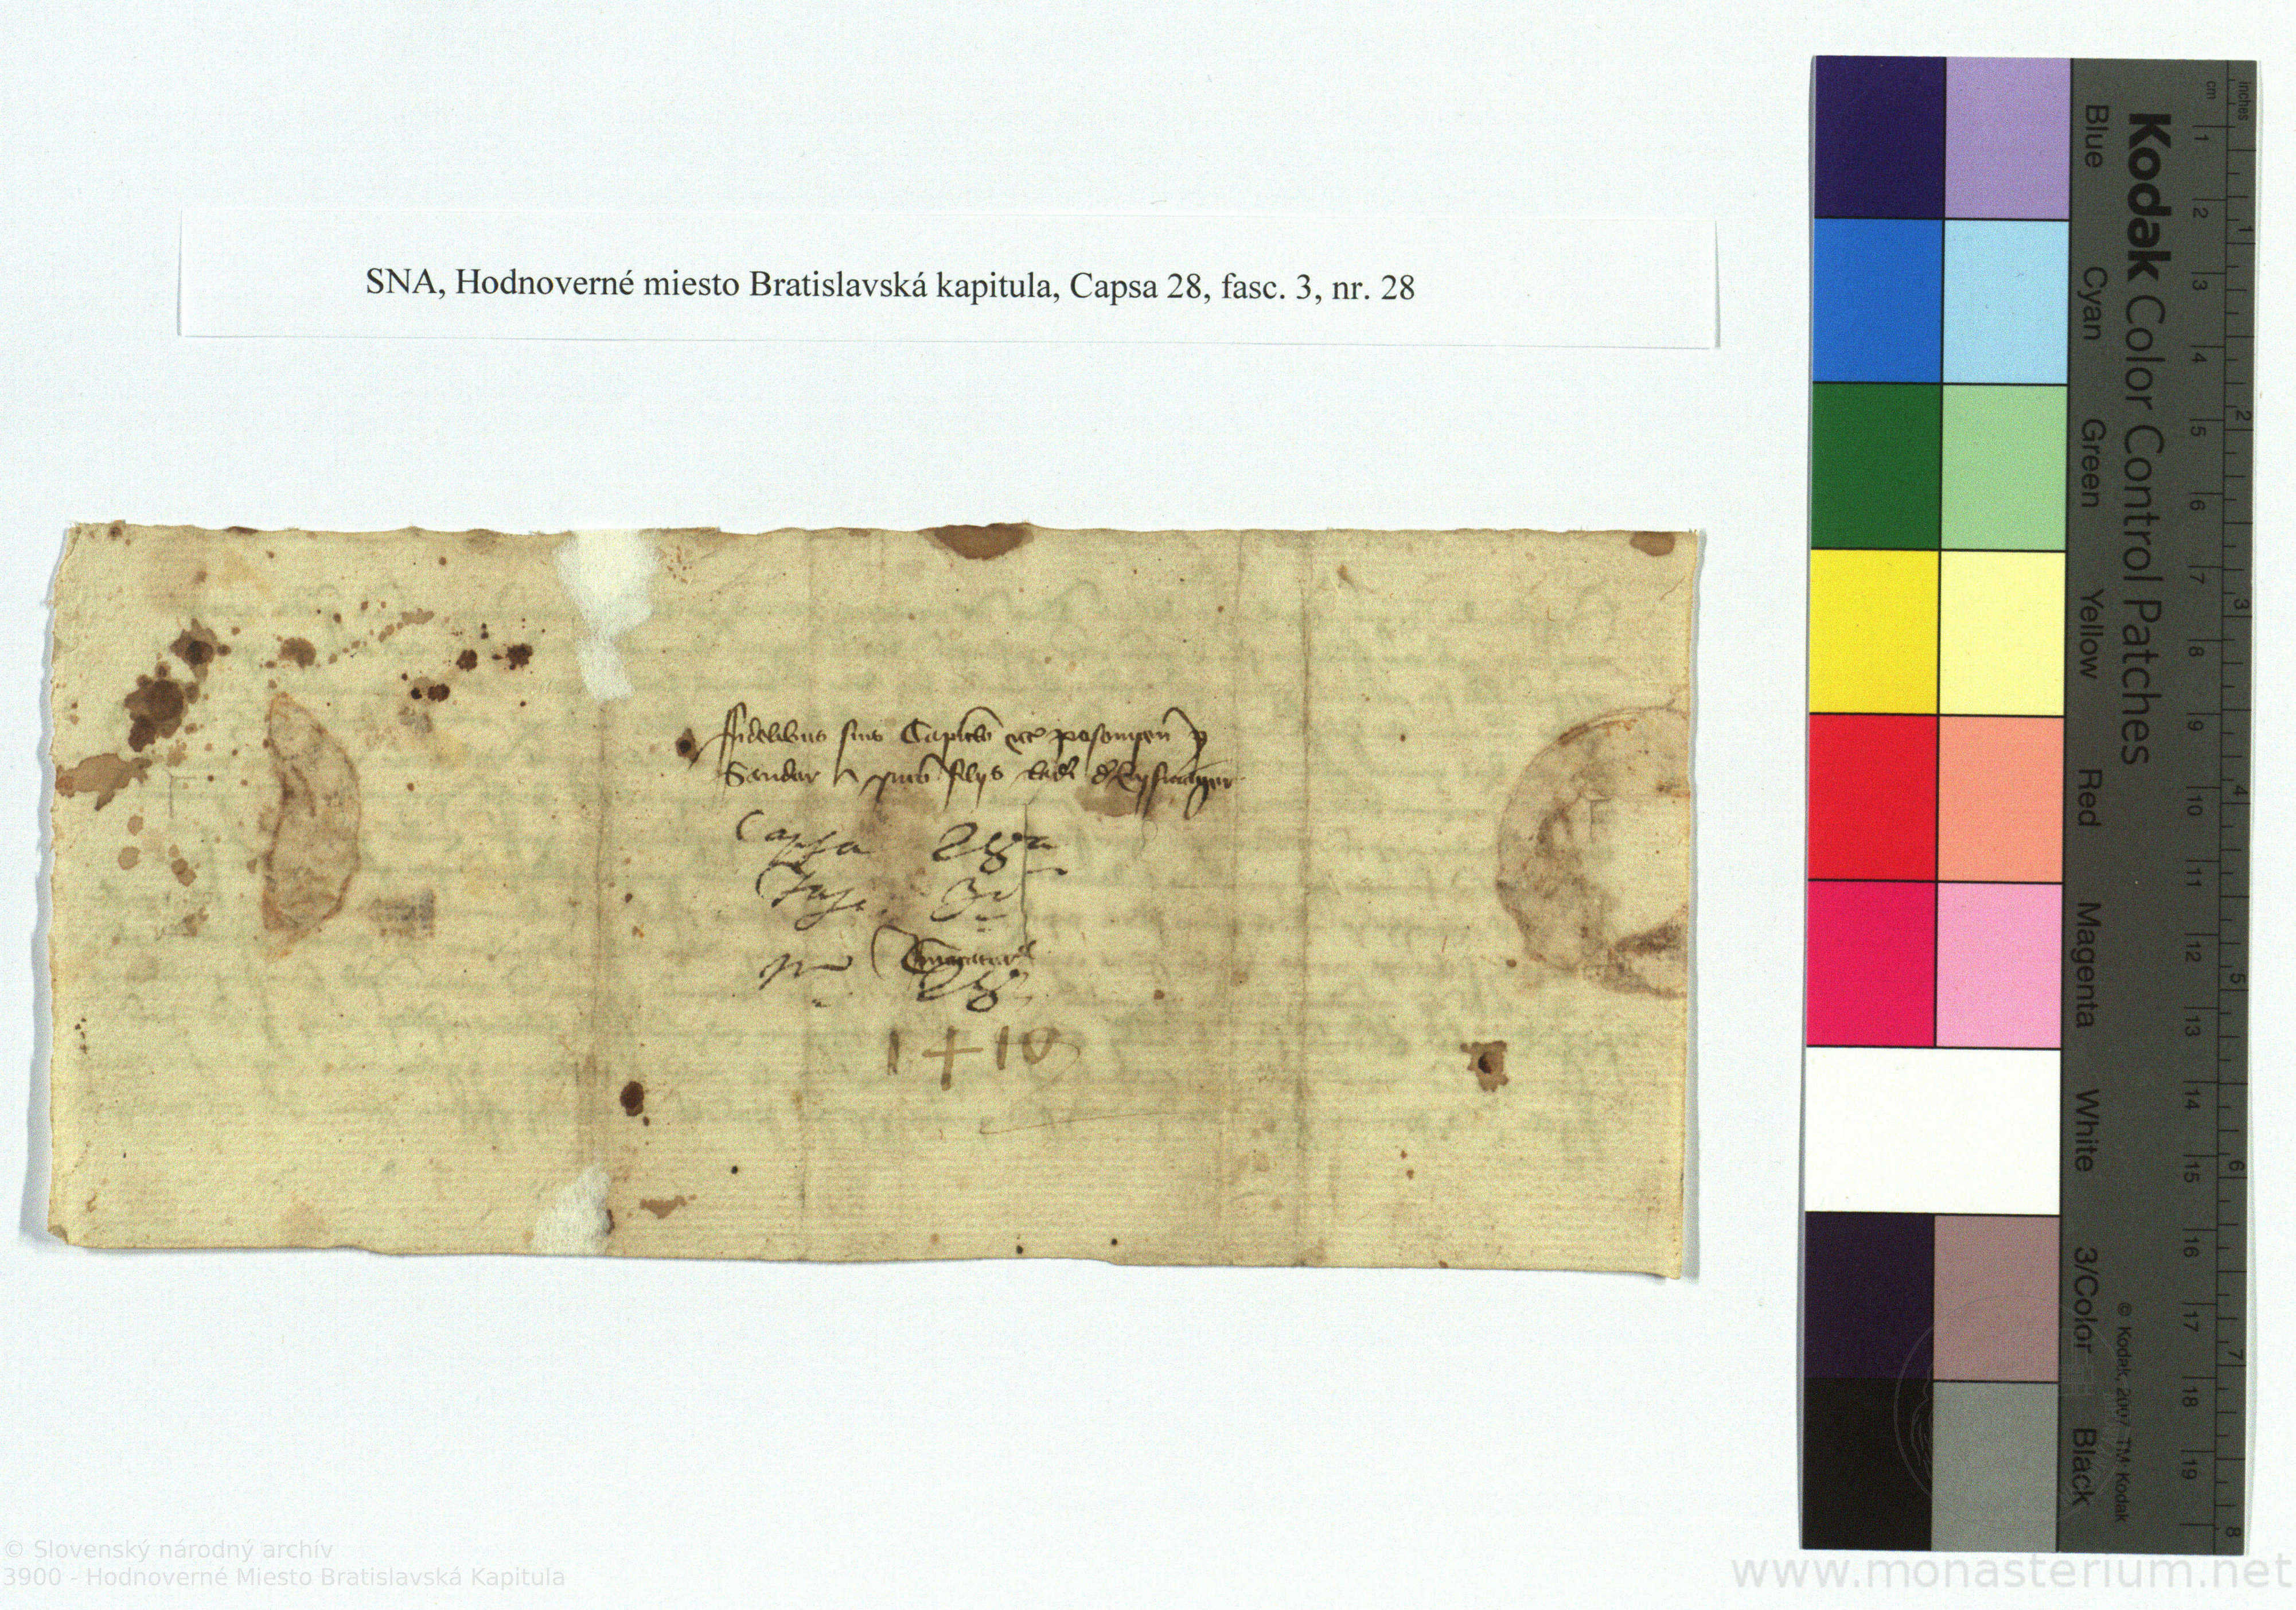 SNA, Hodnoverné miesto Bratislavská kapitula, Capsa 28, fasc. 3, nr. 28
ffidelibus suis Capitlo eccie posoniens p
Sandor filijs
Capsa 28a
Fasc. 3
Nro 28
1+10
Kodak Color Control Patches
Blue Cyan Green Yellow Red Magenta White 3/Color Black
inches 1 2 3 4 5 6 7 8
cm 1 2 3 4 5 6 7 8 9 10 11 12 13 14 15 16 17 18 19
© Kodak, 2007 TM: Kodak
© Slovenský národný archív
3900 - Hodnoverné Miesto Bratislavská Kapitula
www.monasterium.net